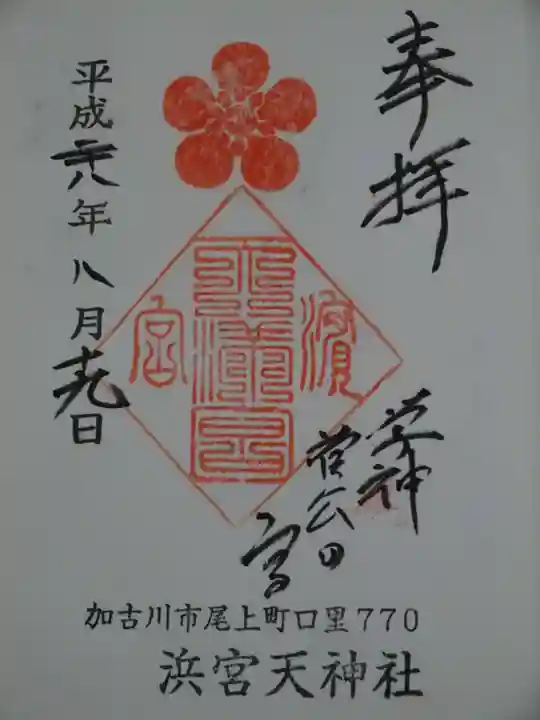 奉拝
学神
菅公の
宮
濱
宮
平成二十八年八月十九日
加古川市尾上町口里770
浜宮天神社